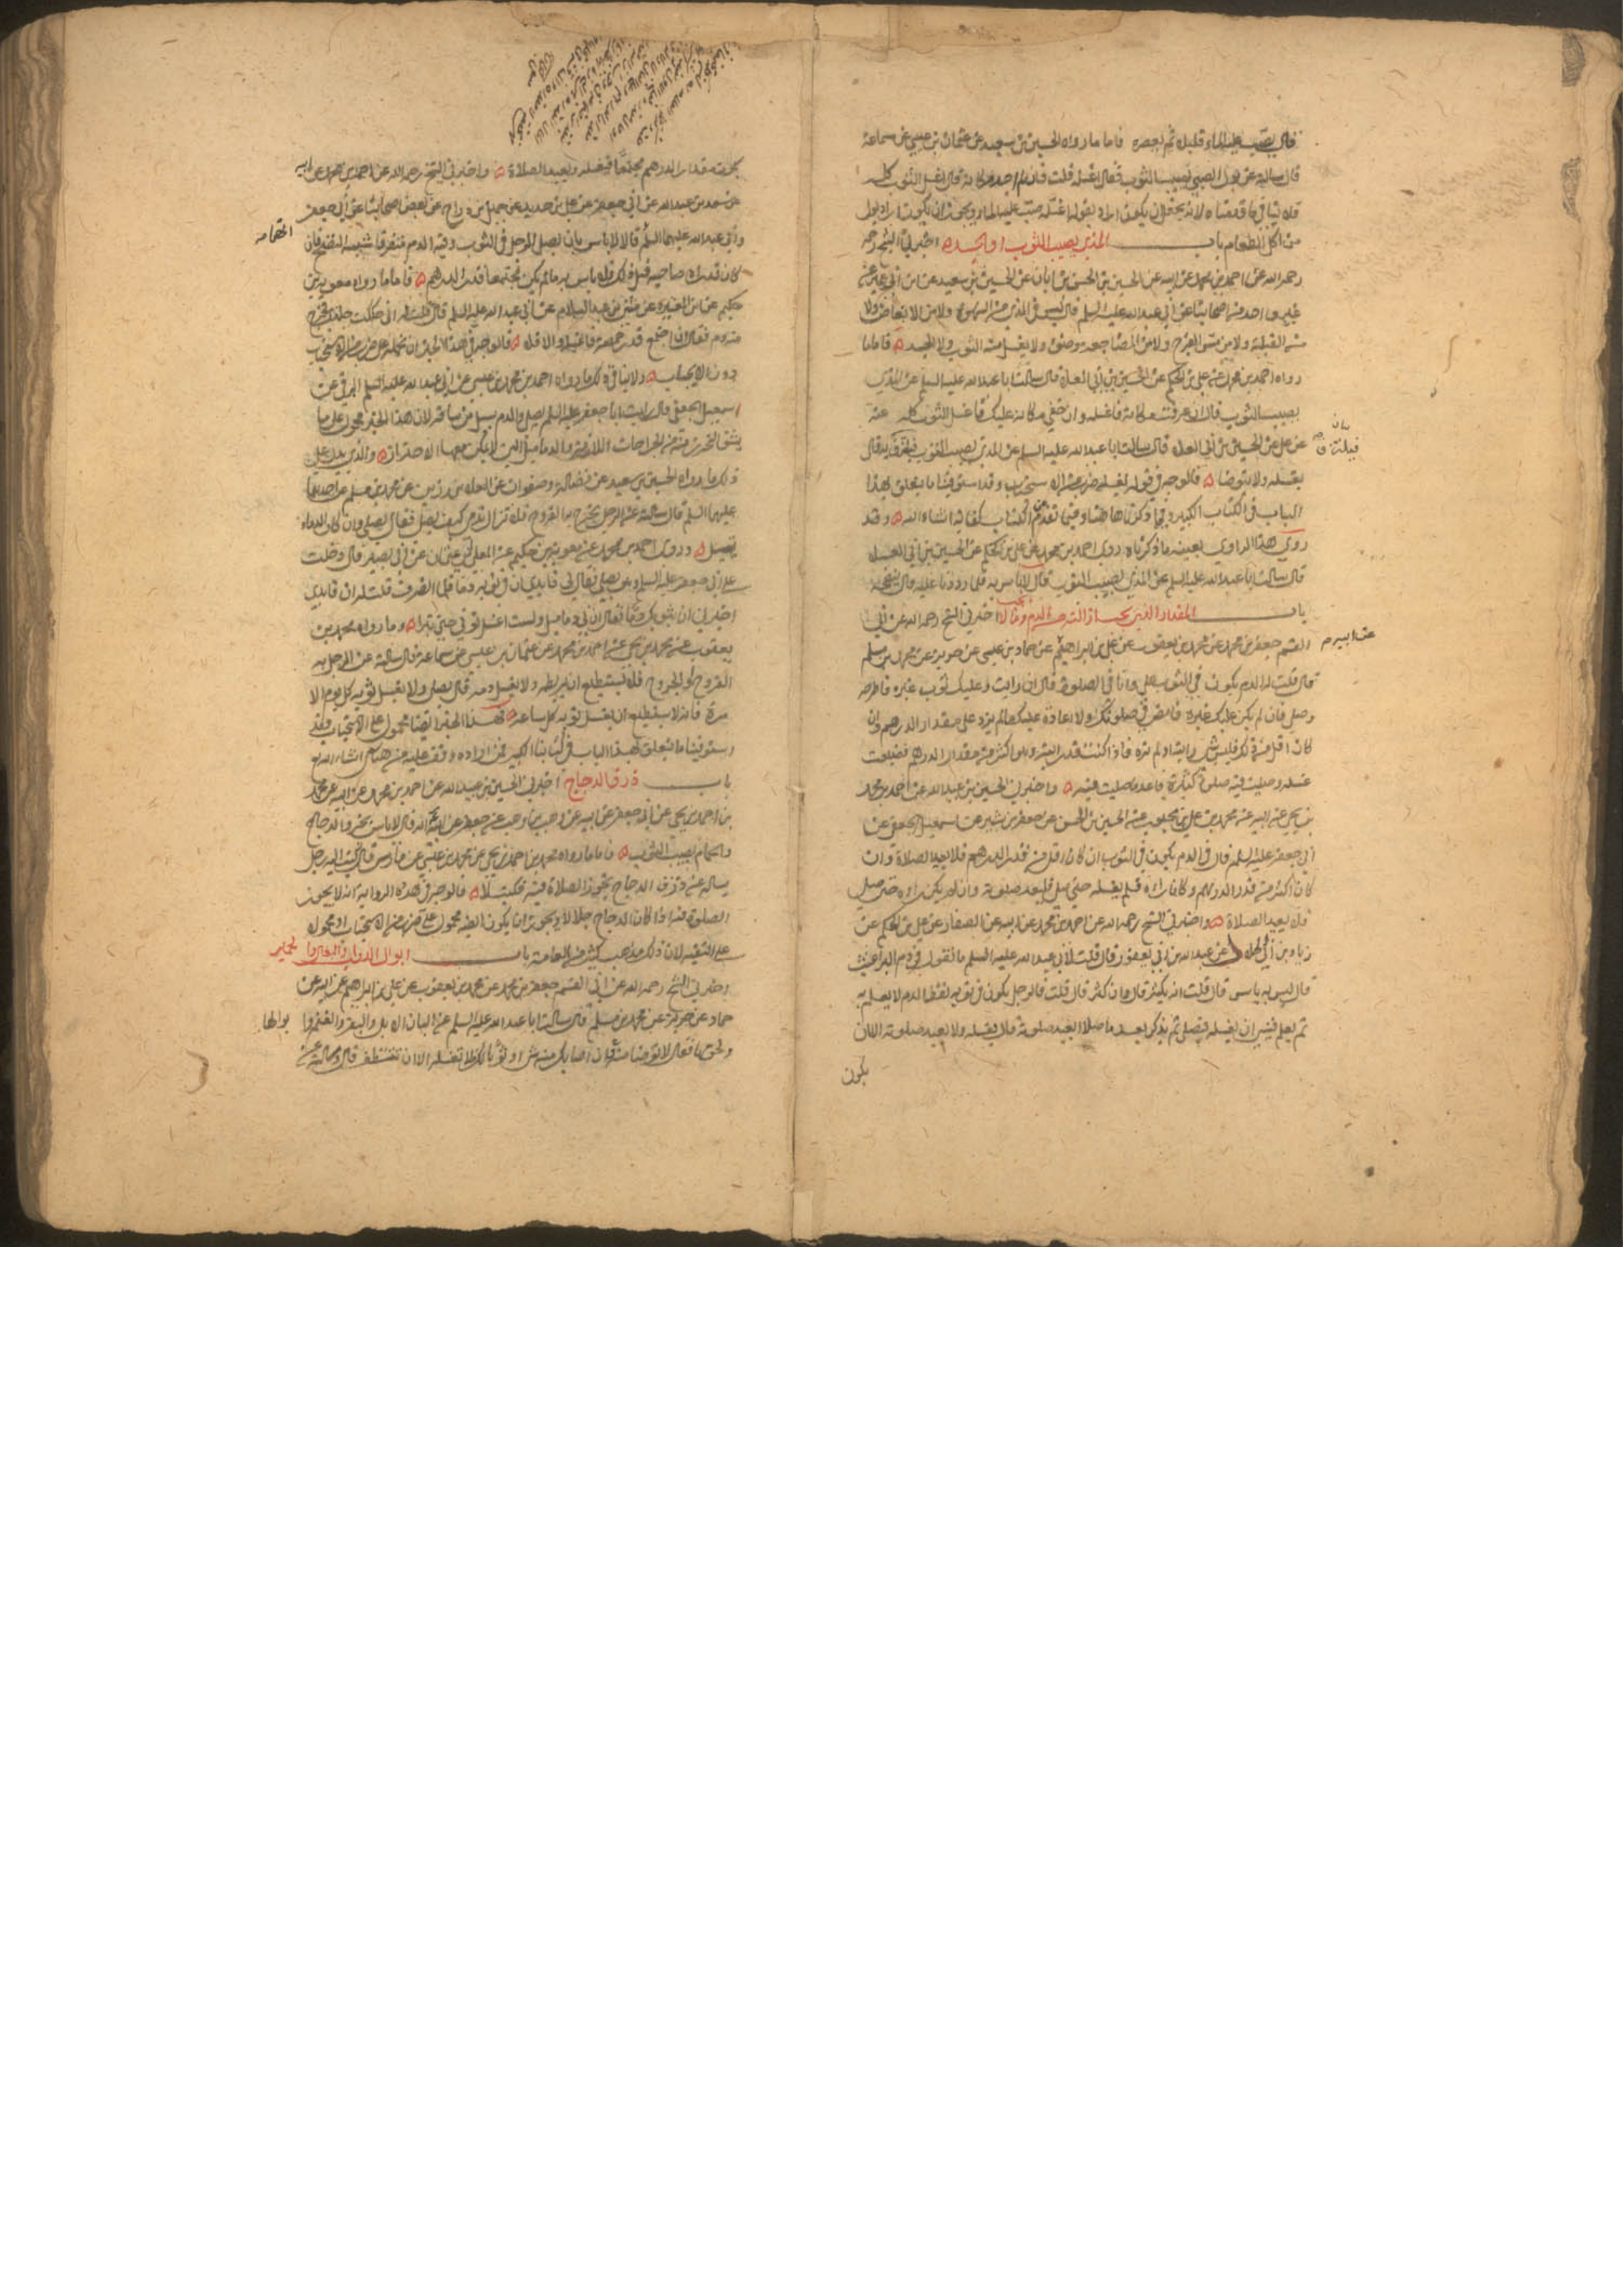 قال يصب عليه الماء قليلا ثم يعصره فاما ما رواه الحسين بن سعيد عن عثمان بن عيسى عن سماعة
قال سالته عن بول الصبي يصيب الثوب فقال اغسله قلت فان لم اجد مكانه قال اغسل الثوب كله
فلا ينافي ما قدمناه لانه يحتمل ان يكون اراد بقوله اغسله صب عليه الماء ويجوز ان يكون اراد بول
من اكل الطعام باب المذي يصيب الثوب او الجسد اخبرني الشيخ رحمه
رحمه الله عن احمد بن محمد عن ابيه عن الحسين بن الحسن بن ابان عن الحسين بن سعيد عن ابن ابي عمير عن
غير واحد من اصحابنا عن ابي عبد الله عليه السلم قال ليس في المذي من الشهوة ولا من الانعاظ ولا
من القبلة ولا من مس الفرج ولا من المضاجعة وضوء ولا يغسل منه الثوب ولا الجسد فاما ما
رواه احمد بن محمد عن علي بن الحكم عن الحسين بن ابي العلاء قال سالت ابا عبد الله عليه السلم عن المذي
يصيب الثوب قال ان عرفت مكانه فاغسله وان خفي مكانه عليك فاغسل الثوب كله عنه
عن علي عن الحسين بن ابي العلاء قال سالت ابا عبد الله عليه السلم عن المذي يصيب الثوب فيلتزق به قال
يغسله ولا يتوضا فالوجه في قوله يغسله ضرب من الاستحباب وقد استوفينا ما يتعلق بهذا
الباب في الكتاب الكبير وفيما ذكرناه هاهنا وفيما تقدم الكتاب كفاية ان شاء الله وقد
روى هذا الراوي بعينه ما ذكرناه روى احمد بن محمد عن علي بن الحكم عن الحسين بن ابي العلاء
قال سالت ابا عبد الله عليه السلم عن المذي يصيب الثوب قال لا باس به فلما رددنا عليه قال ينضحه
باب المقدار الذي يجب ازالته من الدم وما لا اخبرني الشيخ رحمه الله عن ابي
القسم جعفر بن محمد عن محمد بن يعقوب عن علي بن ابراهيم عن حماد بن عيسى عن حريز عن محمد بن مسلم
عن ابيه
قال قلت له الدم يكون في الثوب علي وانا في الصلوة قال ان رايت وعليك ثوب غيره فاطرحه
وصل فان لم يكن عليك غيره فامض في صلوتك ولا اعادة عليك ما لم يزد على مقدار الدرهم وان
كان اقل من ذلك فليس بشيء رايته او لم تره فاذا كنت قد رايته وهو اكثر من مقدار الدرهم فضيعت
غسله وصليت فيه صلوة كثيرة فاعد ما صليت فيه واخبرني الحسين بن عبيد الله عن احمد بن محمد
بن يحيى عن ابيه عن محمد بن علي بن محبوب عن الحسين بن الحسن عن جعفر بن بشير عن اسمعيل الجعفي عن
ابي جعفر عليه السلم قال في الدم يكون في الثوب ان كان اقل من قدر الدرهم فلا يعيد الصلاة وان
كان اكثر من قدر الدرهم وكان راه فلم يغسله حتى صلى فليعد صلوته وان لم يكن راه حتى صلى
فلا يعيد الصلاة واخبرني الشيخ رحمه الله عن احمد بن محمد عن ابيه عن الصفار عن علي بن الحكم عن
زياد بن ابي الحلال عن عبد الله بن ابي يعفور قال قلت لابي عبد الله عليه السلم ما تقول في دم البراغيث
قال ليس به باس قال قلت انه يكثر قال وان كثر قال قلت فالرجل يكون في ثوبه نقط الدم لا يعلم به
ثم يعلم فنسي ان يغسله فيصلي ثم يذكر بعد ما صلى ايعيد صلوته قال يغسله ولا يعيد صلوته الا ان
يكون
يكون مقدار الدرهم مجتمعا فيغسله ويعيد الصلاة واخبرني الشيخ رحمه الله عن احمد بن محمد عن ابيه
عن سعد بن عبد الله عن ابي جعفر عن علي بن حديد عن جميل بن دراج عن بعض اصحابنا عن ابي جعفر
وابي عبد الله عليهما السلم قالا لا باس بان يصلي الرجل في الثوب وفيه الدم متفرقا شبيه النضح فان
كان قد راه صاحبه قبل ذلك فلا باس به ما لم يكن مجتمعا قدر الدرهم فاما ما رواه معوية بن
حكيم عن ابن المغيرة عن مثنى بن عبد السلام عن ابي عبد الله عليه السلم قال قلت له اني حككت جلدي فخرج
منه دم فقال ان اجتمع قدر حمصة فاغسله والا فلا فالوجه في هذا الخبر ان نحمله على ضرب من الاستحباب
دون الايجاب ولا ينافي ذلك ما رواه احمد بن محمد بن عيسى عن ابي عبد الله عليه السلم البرقي عن
اسمعيل الجعفي قال رايت ابا جعفر عليه السلم يصلي والدم يسيل من ساقه لان هذا الخبر محمول على ما
يشق التحرز منه من الجراحات اللازمة والدماميل التي لا يمكن معها الاحتراز والذي يدل على
ذلك ما رواه الحسين بن سعيد عن فضالة وصفوان عن العلاء بن رزين عن محمد بن مسلم عن احدهما
عليهما السلم قال سالته عن الرجل يخرج به القروح فلا تزال تدمي كيف يصلي فقال يصلي وان كان الدماء
تسيل وروى احمد بن محمد عن معوية بن حكيم عن المعلى ابي عثمان عن ابي بصير قال دخلت
على ابي جعفر عليه السلم وهو يصلي فقال لي قايدي ان في ثوبه دما فلما انصرف قلت له ان قايدي
اخبرني ان بثوبك دما فقال ان بي دماميل ولست اغسل ثوبي حتى تبرا وما رواه محمد بن
يعقوب عن محمد بن يحيى عن احمد بن محمد عن عثمان بن عيسى عن سماعة قال سالته عن الرجل به
القروح او الجروح فلا يستطيع ان يربطه ولا يغسل دمه قال يصلي ولا يغسل ثوبه كل يوم الا
مرة فانه لا يستطيع ان يغسل ثوبه كل ساعة فهذا الخبر ايضا محمول على الاستحباب وقد
استوفينا ما يتعلق بهذا الباب في كتابنا الكبير فمن اراده وقف عليه من هناك انشاء الله
باب ذرق الدجاج اخبرني الحسين بن عبيد الله عن احمد بن محمد عن ابيه عن محمد
بن احمد بن يحيى عن ابي جعفر عن ابيه عن وهب بن وهب عن جعفر عن ابيه انه قال لا باس بخرو الدجاج
والحمام يصيب الثوب فاما ما رواه محمد بن احمد بن يحيى عن محمد بن عيسى عن فارس قال كتب اليه رجل
يساله عن ذرق الدجاج يجوز الصلاة فيه فكتب لا فالوجه في هذه الرواية انه لا يجوز
الصلوة فيه اذا كان الدجاج جلالا ويجوز ان يكون ايضا محمولا على ضرب من الاستحباب او محمولا
على التقية لان ذلك مذهب كثير من العامة باب ابوال الدواب والبغال والحمير
اخبرني الشيخ رحمه الله عن ابي القسم جعفر بن محمد عن محمد بن يعقوب عن علي بن ابراهيم عن ابيه عن
حماد عن حريز عن محمد بن مسلم قال سالت ابا عبد الله عليه السلم عن البان الابل والبقر والغنم وابوالها
ولحومها فقال لا توضا منه فان اصابك منه شيء او ثوبا لك فلا تغسله الا ان تتنظف قال وسالته عن